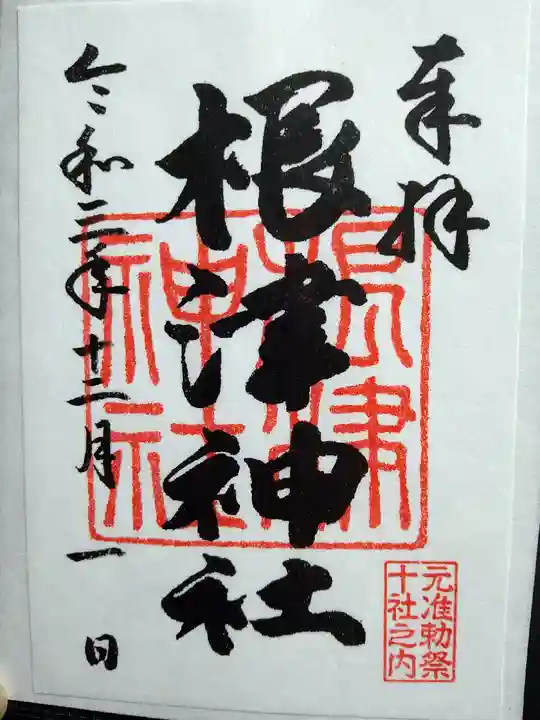 奉拝
根津神社
令和二年十二月一日
根津
神社
元准勅祭
十社之内